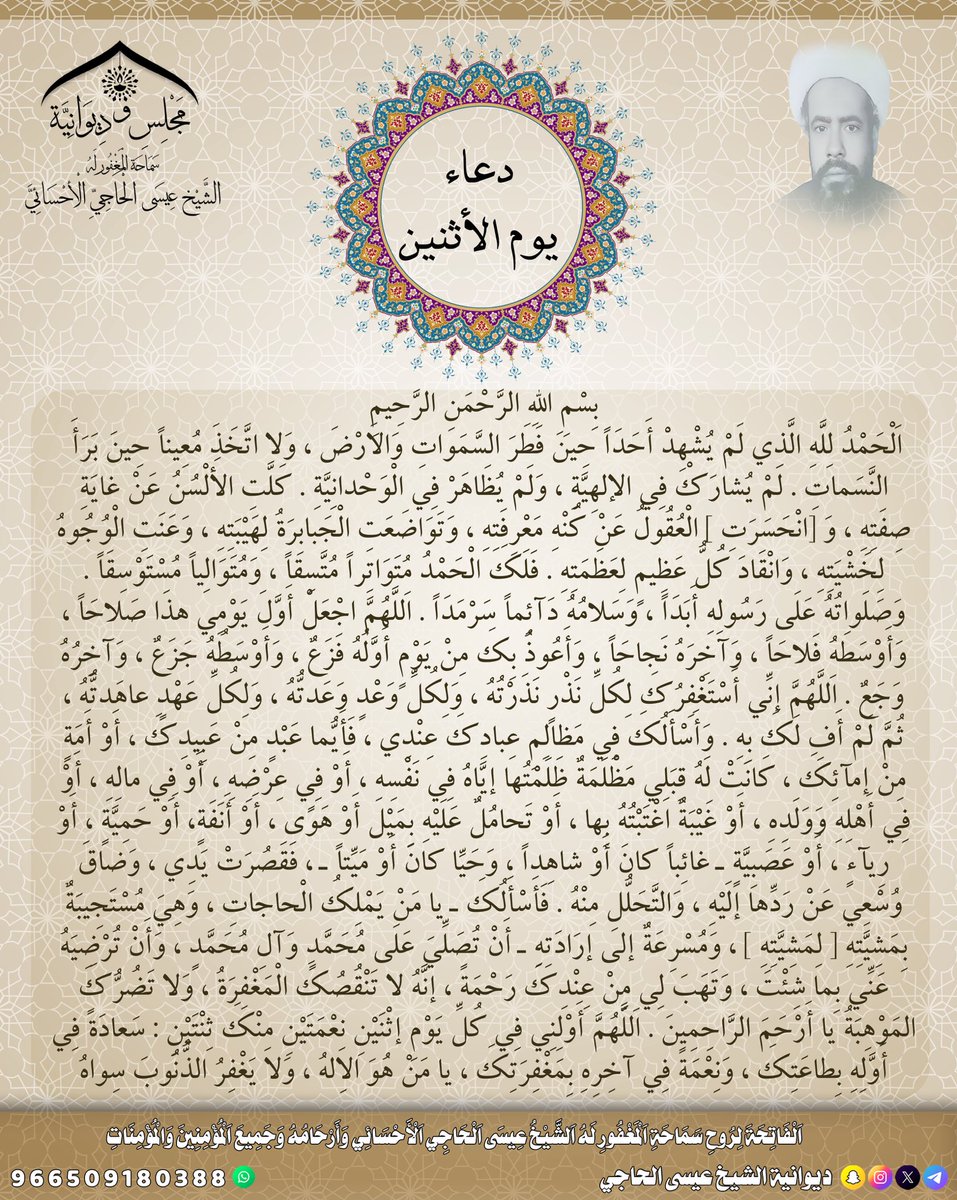 مَجْلِس وَ دِيوَانِيَّة
سَمَاحَة المَغْفُور لَهُ
الشَّيْخ عِيسَى الْحَاجِيّ الْأَحْسَائِيَّ
دعاء
يوم الأثنين
بِسْمِ اللهِ الرَّحْمَنِ الرَّحِيمِ
اَلْحَمْدُ لِلَّهِ الَّذِي لَمْ يُشْهِدْ أَحَدَاً حِينَ فَطَرَ السَّمَوَاتِ وَالأَرْضَ ، وَلا اتَّخَذَ مُعِيناً حِينَ بَرَأَ
النَّسَماتِ . لَمْ يُشارَكْ فِي الإلهِيَّةِ ، وَلَمْ يُظَاهَرْ فِي الْوَحْدانِيَّةِ . كَلَّت الأَلْسُنُ عَنْ غايَةِ
صِفَتِهِ ، وَ [انْحَسَرَتِ ] الْعُقُولُ عَنْ كُنْهِ مَعْرِفَتِهِ ، وَتَوَاضَعَتِ الْجَبابرَةُ لِهَيْبَتِهِ ، وَعَنَتِ الْوُجُوهُ
لِخَشْيَتِهِ ، وَانْقَادَ كُلُّ عَظِيمٍ لِعَظَمَتِهِ . فَلَكَ الْحَمْدُ مُتَوَاتِراً مُتَّسِقَاً ، وَمُتَوَالِياً مُسْتَوْسِقَاً .
وَصَلَواتُهُ عَلَى رَسُولِهِ أَبَدَاً ، وَسَلامُهُ دَآئِماً سَرْمَدَاً . اَللَّهُمَّ اجْعَلْ أَوَّلَ يَوْمِي هذَا صَلاحَاً ،
وَأَوْسَطَهُ فَلاحَاً ، وَآخِرَهُ نَجاحَاً ، وَأَعُوذُ بِكَ مِنْ يَوْمٍ أَوَّلُهُ فَزَعٌ ، وَأَوْسَطُهُ جَزَعٌ ، وَآخِرُهُ
وَجَعٌ . اَللَّهُمَّ إِنِّي أَسْتَغْفِرُكَ لِكُلِّ نَذْرٍ نَذَرْتُهُ ، وَلِكُلِّ وَعْدٍ وَعَدتُّهُ ، وَلِكُلِّ عَهْدٍ عاهَدتُّهُ ،
ثُمَّ لَمْ أَفِ لَكَ بِهِ . وَأَسْأَلُكَ فِي مَظَالِمِ عِبادِكَ عِنْدِي ، فَأَيُّما عَبْدٍ مِنْ عَبِيدِكَ ، أَوْ أَمَةٍ
مِنْ إِمآئِكَ ، كَانَتْ لَهُ قِبَلِي مَظْلِمَةٌ ظَلَمْتُها إِيَّاهُ فِي نَفْسِهِ ، أَوْ فِي عِرْضِهِ ، أَوْ فِي مالِهِ ، أَوْ
فِي أَهْلِهِ وَوَلَدِهِ ، أَوْ غَيْبَةٌ اغْتَبْتُهُ بِها ، أَوْ تَحامُلٌ عَلَيْهِ بِمَيْلٍ أَوْ هَوَىً ، أَوْ أَنَفَةٍ، أَوْ حَمِيَّةٍ ، أَوْ
رِيآءٍ ، أَوْ عَصَبِيَّةٍ ـ غائِباً كانَ أَوْ شاهِداً ، وَحَيَّا كانَ أَوْ مَيِّتاً ـ ، فَقَصُرَتْ يَدِي ، وَضاقَ
وُسْعِي عَنْ رَدِّها إِلَيْهِ ، وَالتَّحَلُّلِ مِنْهُ . فَأَسْأَلُكَ ـ يا مَنْ يَمْلِكُ الْحاجاتِ ، وَهِيَ مُسْتَجِيبَةٌ
بِمَشِيَّتِهِ [ لِمَشيَّتِهِ ] ، وَمُسْرِعَةٌ إِلَى إِرَادَتِهِ ـ أَنْ تُصَلِّيَ عَلَى مُحَمَّدٍ وَآلِ مُحَمَّد ، وَأَنْ تُرْضِيَهُ
عَنِّي بِما شَئْتَ ، وَتَهَبَ لِي مِنْ عِنْدِكَ رَحْمَةً ، إِنَّهُ لا تَنْقُصُكَ الْمَغْفِرَةُ ، وَلا تَضُرُّكَ
المَوْهِبَةُ يا أَرْحَمَ الرَّاحِمِينَ . اَللَّهُمَّ أَوْلِنِي فِي كُلِّ يَوْمِ إِثْنَيْنِ نِعْمَتَيْنِ مِنْكَ ثِنْتَيْنِ : سَعادَةً فِي
أَوَّلِهِ بِطاعَتِكَ ، وَنِعْمَةً فِي آخِرِهِ بِمَغْفِرَتِكَ ، يا مَنْ هُوَ الاِلهُ ، وَلا يَغْفِرُ الذُّنُوبَ سِواهُ
اَلْفَاتِحَةَ لِرُوحِ سَمَاحَةِ اَلْمَغْفُورِ لَهُ اَلشَّيْخُ عِيسَى اَلْحَاجِي اَلْأَحْسَائِي وَأَرْحَامُهُ وَجَمِيعَ اَلْمُؤْمِنِينَ وَالْمُؤْمِنَاتِ
ديوانية الشيخ عيسى الحاجي
966509180388